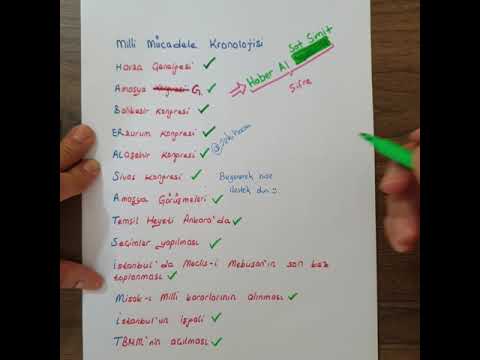 Milli Mücadele Kronolojisi
Havza Genelgesi ✓
Amasya Kongresi G. ✓
Balıkesir Kongresi ✓
ERzurum Kongresi ✓
ALaşehir Kongresi ✓
Sivas Kongresi ✓
Amasya Görüşmeleri ✓
Temsil Heyeti Ankara'da ✓
Seçimler yapılması ✓
İstanbul'da Meclis-i Mebusan'ın son kez
toplanması ✓
Misak-ı Milli kararlarının alınması ✓
İstanbul'un işgali ✓
TBMM'nin açılması ✓
Haber Al Sat Simit
Şifre
Beğenerek bize
destek olun :)